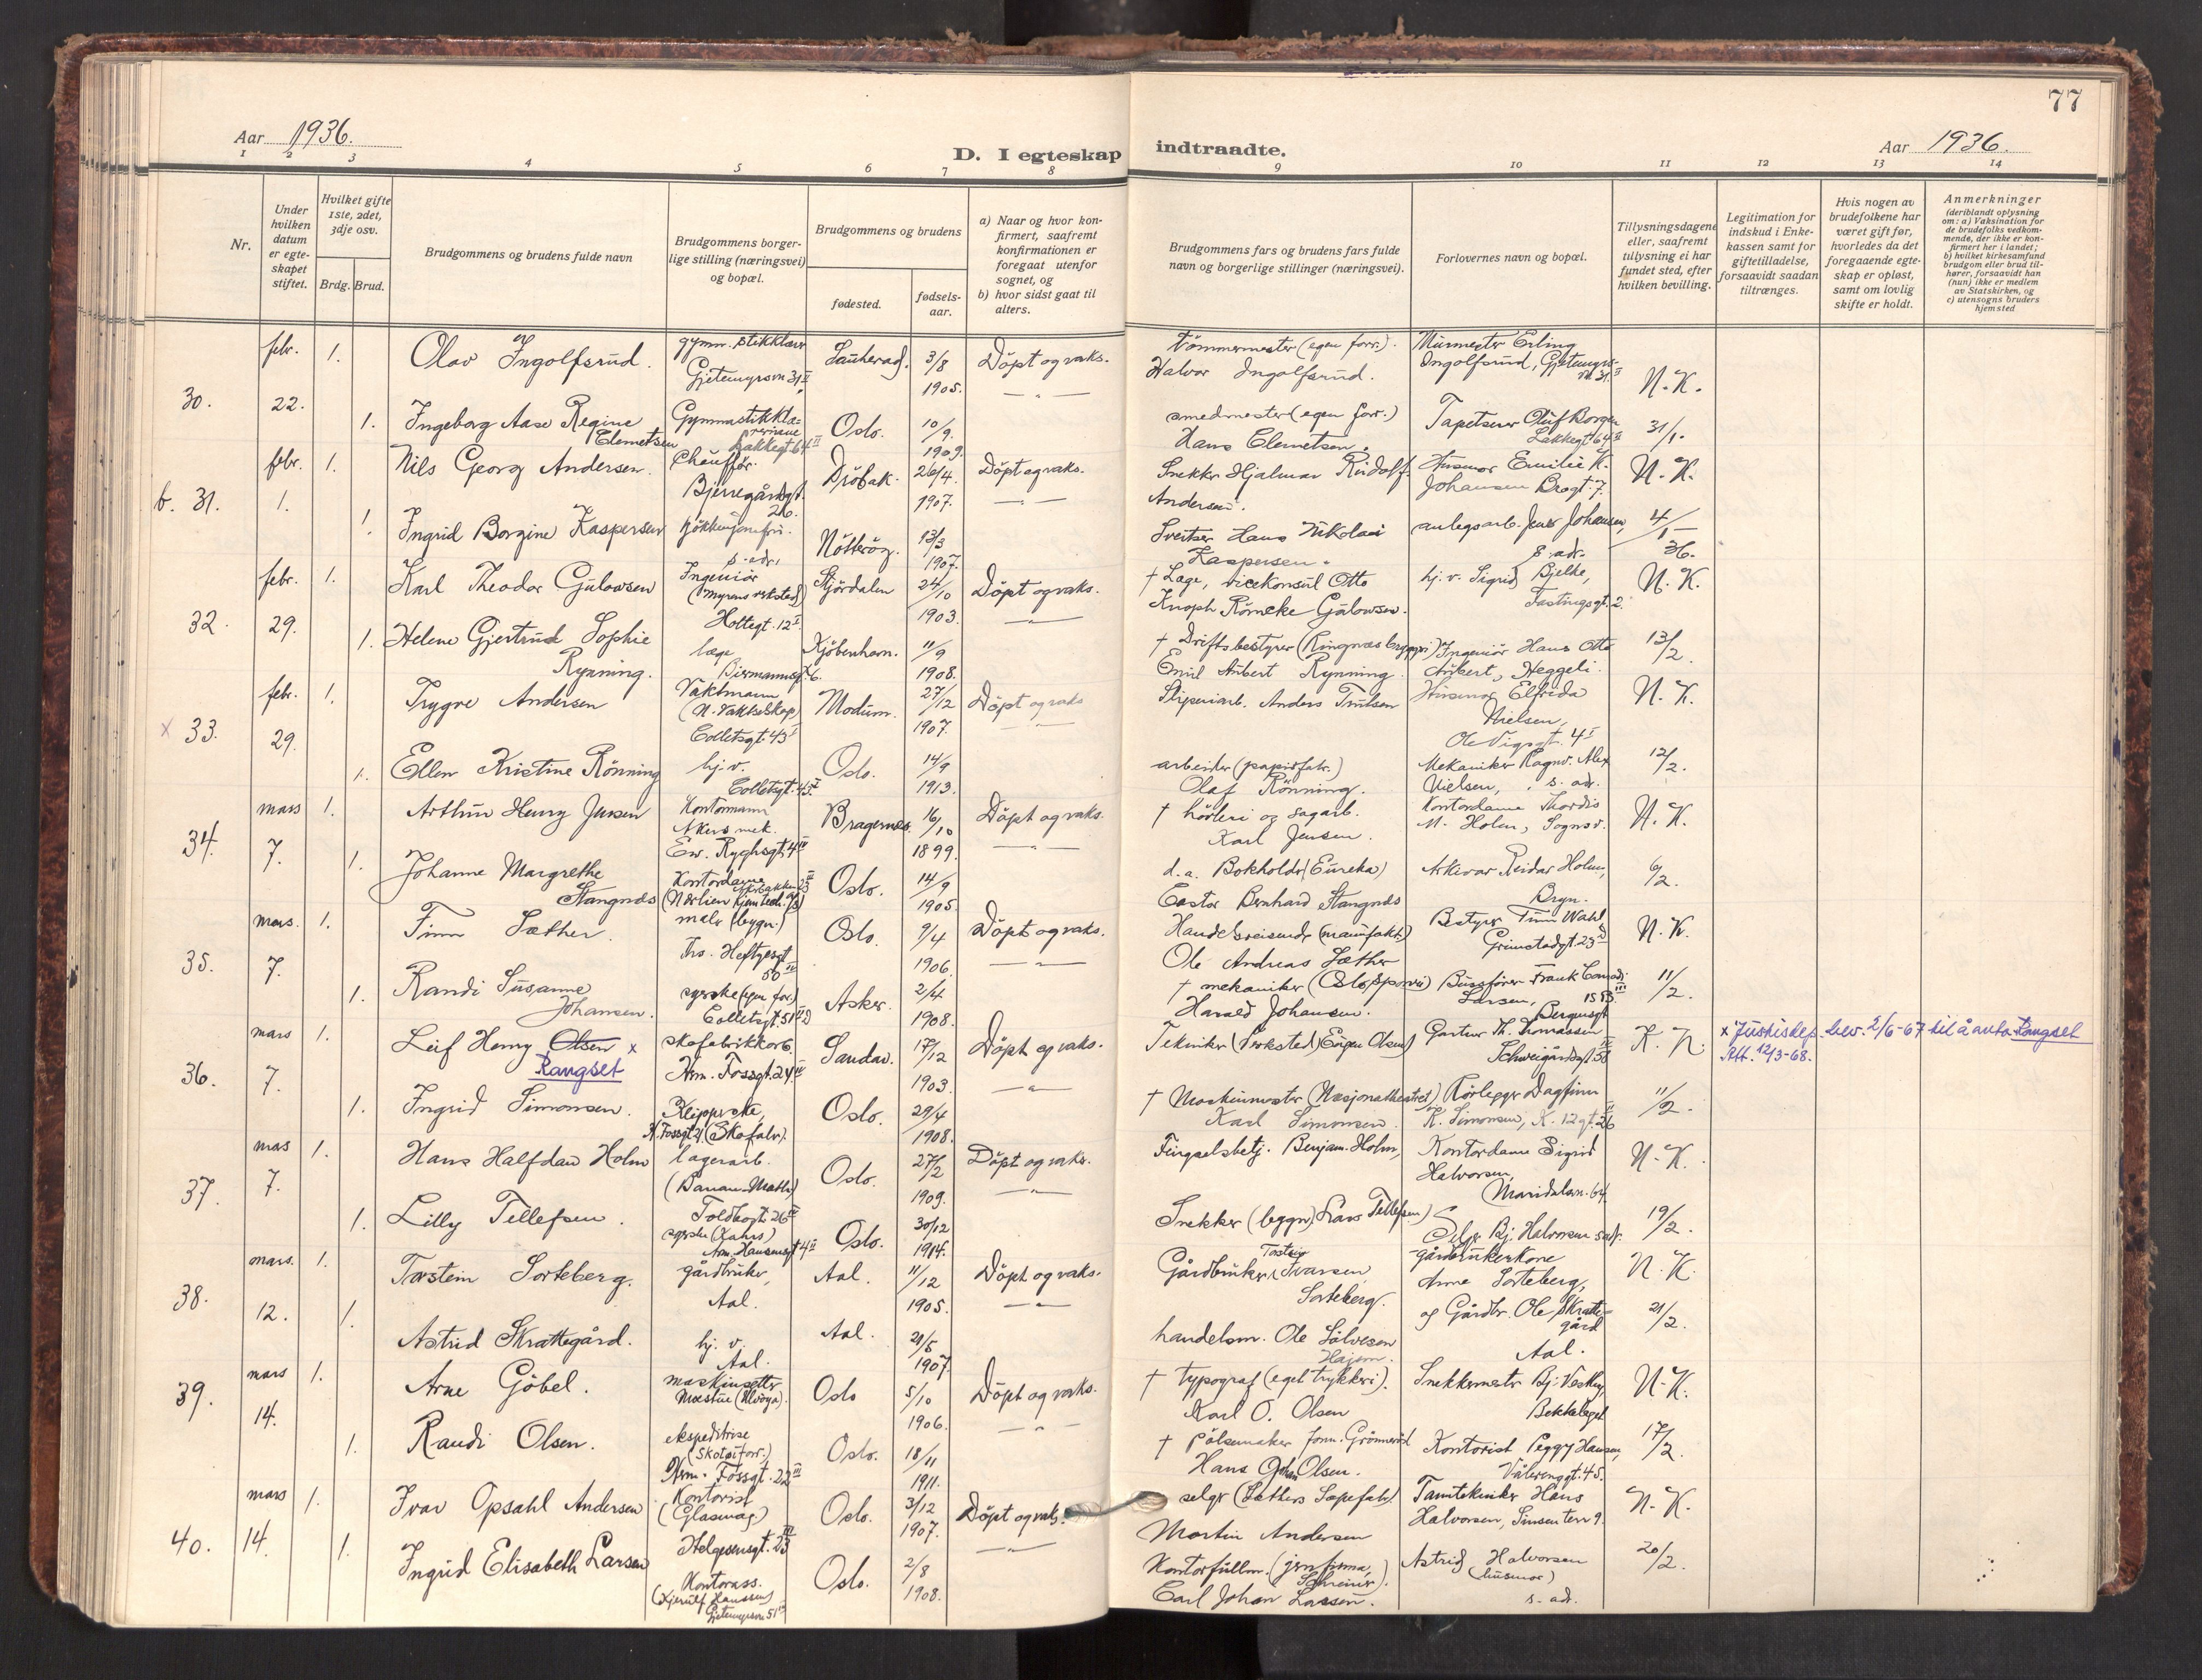 77
Aar 1936.
D. I egteskap indtraadte.
Aar 1936.
1 2 3 4 5 6 7 8 9 10 11 12 13 14
Nr.
Under hvilken datum er egteskapet stiftet.
Hvilket gifte 1ste, 2det, 3dje osv.
Brdg. Brud.
Brudgommens og brudens fulde navn
Brudgommens borgerlige stilling (næringsvei) og bopæl.
Brudgommens og brudens
fødested.
fødselsaar.
a) Naar og hvor konfirmert, saafremt konfirmationen er foregaat utenfor sognet, og
b) hvor sidst gaat til alters.
Brudgommens fars og brudens fars fulde navn og borgerlige stillinger (næringsvei).
Forlovernes navn og bopæl.
Tillysningsdagene eller, saafremt tillysning ei har fundet sted, efter hvilken bevilling.
Legitimation for indskud i Enkekassen samt for giftetilladelse, forsaavidt saadan tiltrænges.
Hvis nogen av brudefolkene har været gift før, hvorledes da det foregaaende egteskap er opløst, samt om lovlig skifte er holdt.
Anmerkninger
(deriblandt oplysning om: a) Vaksination for de brudefolks vedkommende, der ikke er konfirmert her i landet;
b) hvilket kirkesamfund brudgom eller brud tilhører, forsaavidt han (hun) ikke er medlem av Statskirken, og
c) utensogns bruders hjemsted
30. febr. 22. 1. Olav Ingolfsrud. Gjetemyrsvn 31 II Sauherad. 3/8 1905. Döpt og vaks. tömmermester (egen forr.) Halvor Ingolfsrud. Murmester Erling Ingolfsrud, N.K.
1. Ingeborg Aase Regine Clemetsen Lakkegt 64 II Oslo. 10/9. 1909. smedmester (egen forr.) Hans Clemetsen. Tapetserer Oluf Borgen Lakkegt 64 II 31/1.
b. 31. febr. 1. 1. Nils Georg Andersen. Chauffør. Bjerregårdsgt. 26. Dröbak. 26/4. 1907. Döpt og vaks. Snekker Hjalmar Rudolf Andersen. Husmor Emilie K. Johansen N.K.
1. Ingrid Borgine Kaspersen s. adr. Nötteröy. 13/3 1907. Sveitser Hans Nikolai Kaspersen. anlegsarb. Jens Johansen, s. adr. 4/1 - 36.
32. febr. 29. 1. Karl Theodor Gulowsen Ingeniör (Myrens verksted) Holtegt. 12 I. Stjördalen 24/10 1903. Döpt og vaks. † Læge, vicekonsul Otto Knoph Römcke Gulowsen. hj. v. Sigrid Bjelke, Fastingsgt. 2. N.K.
1. Helene Gjertrud Sophie Rynning. læge Biermannsgt. 6. Kjöbenhavn. 11/9 1908. † Driftsbestyrer Emil Aubert Rynning. Ingeniör Hans Otto Aubert, Heggeli. 13/2.
x 33. febr. 29. 1. Trygve Andersen Vaktmann (N. Vaktselskap) Colletsgt. 43 I Modum. 27/12 1907. Döpt og vaks Sliperiarb. Anders Trulsen Husmor Elfrida Nielsen, Ole Vigsgt. 4 I N.K.
1. Ellen Kristine Rönning hj. v. Colletsgt. 43 I Oslo. 14/9 1913. arbeider (papirfabr.) Olaf Rönning. Mekaniker Ragnv. Alex Nielsen, s. adr. 12/2.
34. mars 7. 1. Arthur Henry Jensen Kontormann Akers mek. Ew. Ryghsgt. 4 IV Bragernes. 16/10 1899. Döpt og vaks. Karl Jensen. Kontordame Thordis M. Holm, Sognsv. N.K.
1. Johanne Margrethe Stangnæs Kontordame Oslo. 14/9 1905. d. a. Bokholder (Eureka) Castor Bernhard Stangnæs Arkivar Reidar Holm, Bryn. 6/2.
35. mars. 7. 1. Finn Sæther. maler (bygn.) Ths. Heftyesgt. 50 IV Oslo. 9/4 1906. Döpt og vaks. Handelsreisende (manufakt.) Ole Andreas Sæther Bestyrer Finn Wahl Grimstadgt. 23 N.K.
1. Randi Susanne Johansen. syerske (egen for.) Colletsgt. 51 Asker. 2/4 1908. † mekaniker (Oslo Sporvei) Harald Johansen. Bussförer Frank Conradi Larsen, Bergensgt 11/2.
36. mars 7. 1. Leif Henry Olsen x Rangset skofabrikkarb. Arm. Fossgt. 24 IV Sandar. 17/12 1903. Döpt og vaks. Tekniker (Verksted) Eugen Olsen Gartner Th. Thomassen Schweigårdsgt. 58 N.K. x Justisdep. bev. 2/6-67 til å anta Rangset
Att. 12/3-68.
1. Ingrid Simonsen. Klipperske, (Skofabr.) Oslo. 29/4 1908. † Maskinmester (Nasjonaltheatret) Karl Simonsen. Rörlegger Dagfinn K. Simonsen, K. 12 gt. 26 11/2.
37. mars 7. 1. Hans Halfdan Holm lagerarb. (Banan-Matth.) Toldbogt. 26 Oslo. 27/2 1909. Döpt og vaks. Fengselsbetj. Benjam. Holm, Kontordame Sigrid Halvorsen, Maridalsvn. 64. N.K.
1. Lilly Tellefsen. Arn. Hansensgt 4 II Oslo. 30/12 1914. Snekker (bygn.) Lars Tellefsen) Selger Bj. Halvorsen s. adr. 19/2.
38. mars. 12. 1. Torstein Sorteberg. gårdbruker, Aal. Aal. 11/12 1905. Döpt og vaks. Gårdbruker Torstein Ivarsen Sorteberg. gårdbrukerkone Anne Sorteberg, N.K.
1. Astrid Skrattegård. hj. v. Aal. Aal. 21/5 1907. handelsm. Ole Sölvesen Hajem. og Gårdbr. Ole Skrattegård Aal. 21/2.
39. mars 14. 1. Arne Göbel. maskinsetter Oslo 5/10 1906. Döpt og vaks. † typograf (eget trykkeri). Karl O. Olsen Snekkermester Bj. Bekkelaget N.K.
1. Randi Olsen. ekspeditrise (Skotöiforr.) Arm. Fossgt. 22 III Oslo. 18/11 1911. † pölsemaker Hans Johan Olsen. Kontorist Peggy Hansen, Vålerenggt. 45. 17/2.
40. mars 14. 1. Ivar Opsahl Andersen Kontorist (Glasmag.) Helgesensgt. 23 III Oslo. 3/12 1907. Döpt og vaks. selger (Sæthers Såpefabr. Martin Andersen Tanntekniker Hans Halvorsen, Sinsenterr 9. N.K.
1. Ingrid Elisabeth Larsen Kontorass. (Kjerulf Hanssen) Gjetemyrsvn 51 Oslo. 2/8 1908. Kontorfullm. (jernfirma, Schreiner). Carl Johan Larsen. Astrid Halvorsen (husmor) s. adr. 20/2.